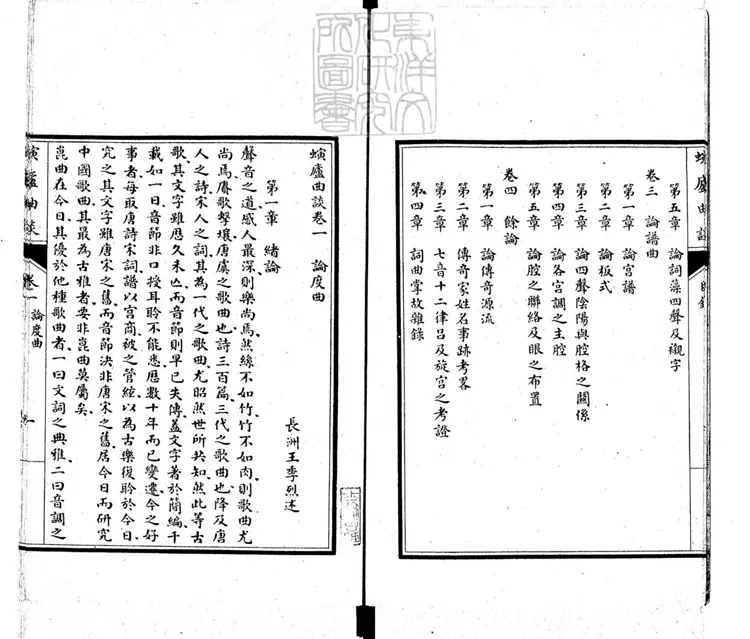 第五章 論詞藻四聲及襯字
卷三 論譜曲
第一章 論宮譜
第二章 論板式
第三章 論四聲陰陽與腔格之關係
第四章 論各宮調之主腔
第五章 論腔之聯絡及眼之布置
卷四 餘論
第一章 論傳奇源流
第二章 傳奇家姓名事跡考畧
第三章 七音十二律呂及旋宮之考證
第四章 詞曲掌故雜錄
東洋文
化研究
所圖書
螾廬曲談卷一 論度曲
長洲王季烈述
第一章 緒論
聲音之道、感人最深、則樂尚焉、然絲不如竹、竹不如肉、則歌曲尤
尚焉、賡歌擊壤、唐虞之歌曲也、詩三百篇、三代之歌曲也、降及唐
人之詩、宋人之詞、其為一代之歌曲、尤昭然世所共知、然此等古
歌、其文字雖歷久未亡、而音節則早已失傳、蓋文字著於簡編、千
載如一日、音節非口授耳聆不能悉、歷數十年而已變遷、今之好
事者、每取唐詩宋詞、譜以宮商、被之管絃、以為古樂復聆於今日、
究之其文字雖唐宋之舊、而音節決非唐宋之舊、居今日而研究
中國歌曲、其最為古雅者、要非崑曲莫屬矣、
崑曲在今日、其優於他種歌曲者、一曰文詞之典雅、二曰音調之
螾廬曲談 卷一 論度曲 一